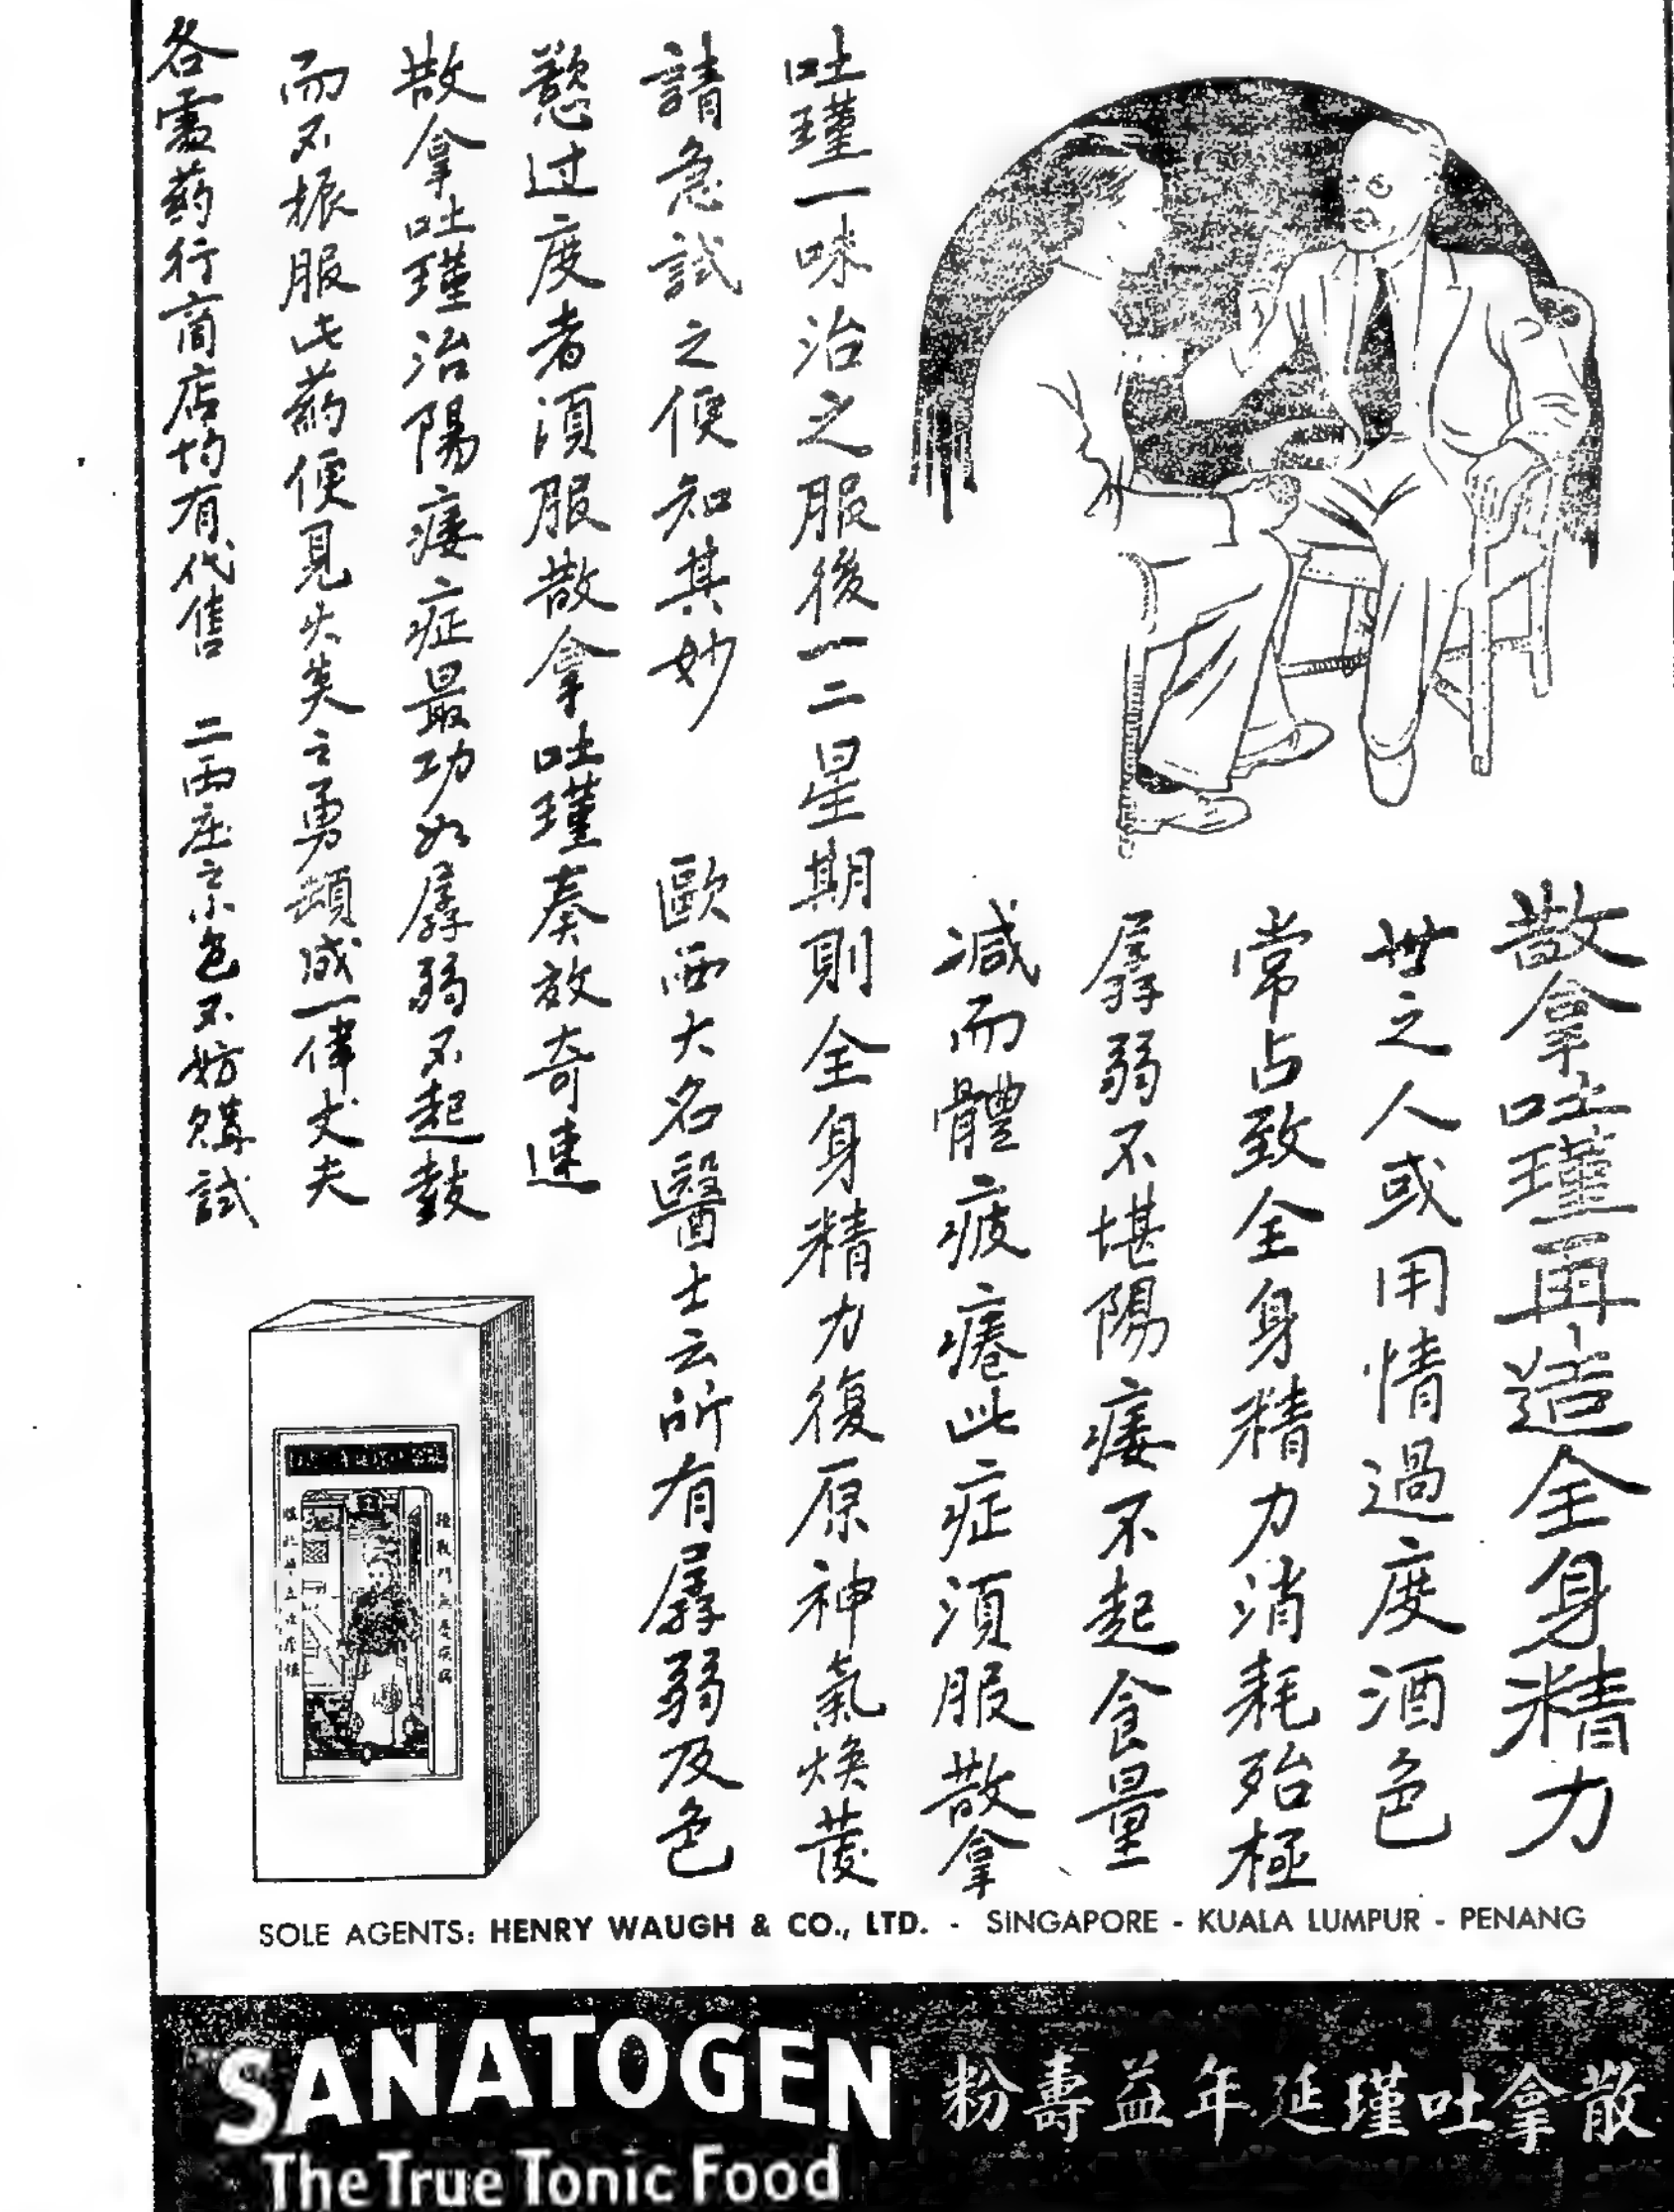 散拿吐瑾再造全身精力
世之人或用情過度酒色
常占致全身精力消耗殆極
孱弱不堪陽痿不起食量
减而體疲瘦此症須服散拿
吐瑾一味治之服後一二星期則全身精力復原神氣焕發
請急試之便知其妙 歐西大名醫士云所有孱弱及色
慾过度者須服散拿吐瑾奏效奇速
散拿吐瑾治陽痿症最功如孱弱不起鼓
而不振服此葯便見失英之勇頓成一偉丈夫
各處葯行商店均有代售 二両庄之小色不妨購試
SOLE AGENTS: HENRY WAUGH & CO., LTD. - SINGAPORE - KUALA LUMPUR - PENANG
SANATOGEN
The True Tonic Food
散拿吐瑾延年益壽粉